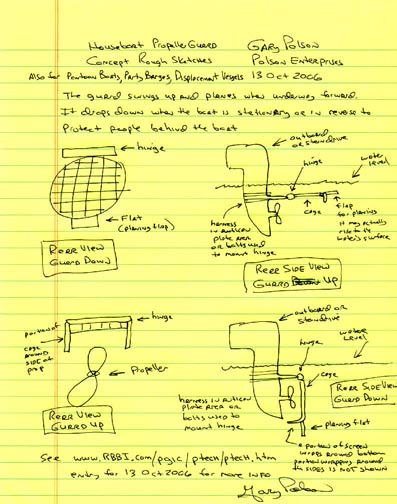 Houseboat Propeller Guard Gary Polson
Concept Rough Sketches Polson Enterprises
Also for Pontoon Boats, Party Barges, Displacement Vessels 13 Oct 2006
The guard swings up and planes when underway forward.
It drops down when the boat is stationary or in reverse to
protect people behind the boat
hinge
Flat
(planing flap)
Rear View
Guard Down
outboard
or sterndrive
hinge
water
level
cage
flap
for planing
it may actually
rise to the
water's surface
harness
in anticav
plate area
or bolts used
to mount hinge
Rear Side View
Guard Up
hinge
portion of
cage around
side of
prop
Propeller
Rear View
Guard Up
outboard or
sterndrive
water
level
hinge
cage
Rear Side View
Guard Down
harness in anticav
plate area or
bolts used to
mount hinge
planing flat
a portion of screen
wraps around bottom
portion wrapping around
the sides is not shown
See www.RBBI.com/pgic/ptech/ptech.htm
entry for 13 Oct 2006 for more info
Gary Polson